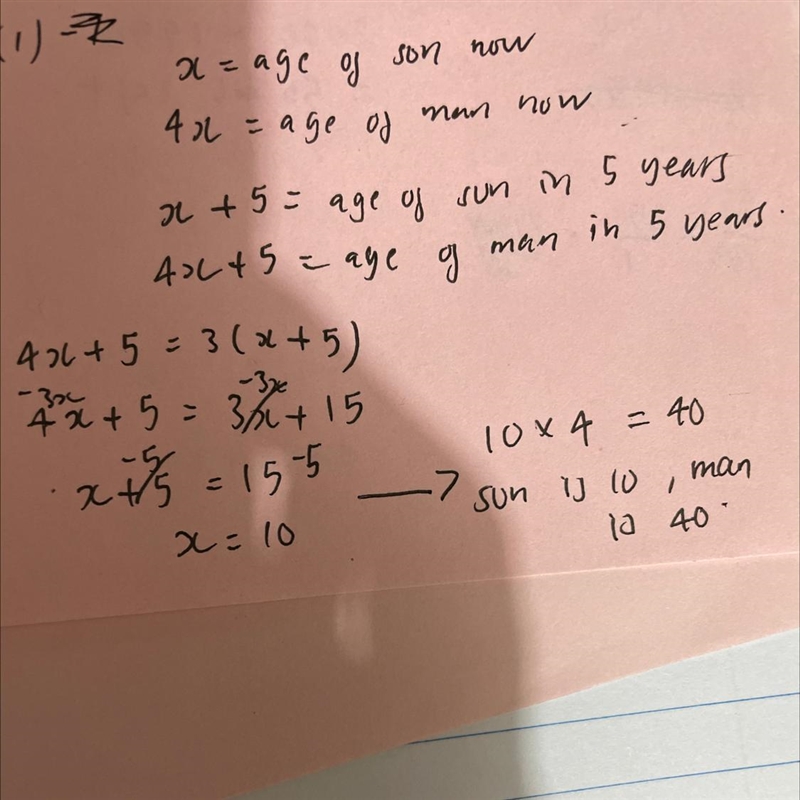 (1)
x = age of son now
4x = age of man now
x + 5 = age of sun in 5 years
4x + 5 = age of man in 5 years.
4x + 5 = 3(x + 5)
-3x -3x
4x + 5 = 3x + 15
-5 -5
x + 5 = 15
x = 10
10 × 4 = 40
sun is 10, man
is 40.